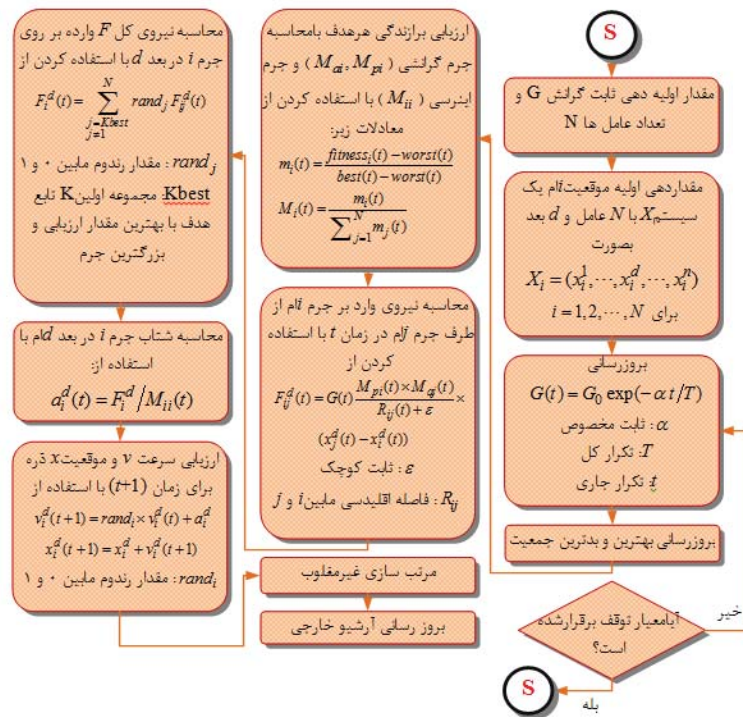 S
مقدار اولیه دهی ثابت گرانش G و
تعداد عامل ها N
مقداردهی اولیه موقعیتiام یک
سیستمX با N عامل و d بعد
بصورت
X_i = (x_i^1, ⋯, x_i^d, ⋯, x_i^n)
برای i = 1,2,⋯, N
بروزرسانی
G(t) = G_0 exp(−α t/T)
α : ثابت مخصوص
T: تکرار کل
t: تکرار جاری
بروزرسانی بهترین و بدترین جمعیت
ارزیابی برازندگی هرهدف بامحاسبه
جرم گرانشی (M_ai, M_pi) و جرم
اینرسی (M_ii) با استفاده کردن از
معادلات زیر:
m_i(t) = (fitness_i(t) − worst(t)) / (best(t) − worst(t))
M_i(t) = m_i(t) / ∑_{j=1}^{N} m_j(t)
محاسبه نیروی وارد بر جرم iام از
طرف جرم jام در زمان t با استفاده
کردن از
F_ij^d(t) = G(t) (M_pi(t) × M_aj(t)) / (R_ij(t) + ε) ×
(x_j^d(t) − x_i^d(t))
ε : ثابت کوچک
R_ij : فاصله اقلیدسی مابینi و j
محاسبه نیروی کل F وارده بر روی
جرم i در بعد d با استفاده کردن از
F_i^d(t) = ∑_{j=Kbest, j≠1}^{N} rand_j F_ij^d(t)
rand_j : مقدار رندوم مابین ۰ و ۱
Kbest: مجموعه اولینK تابع
هدف با بهترین مقدار ارزیابی و
بزرگترین جرم
محاسبه شتاب جرم i در بعد dام با
استفاده از:
a_i^d(t) = F_i^d / M_ii(t)
ارزیابی سرعت v و موقعیتx ذره
برای زمان (t+1) با استفاده از
v_i^d(t+1) = rand_i × v_i^d(t) + a_i^d
x_i^d(t+1) = x_i^d + v_i^d(t+1)
rand_i : مقدار رندوم مابین ۰ و ۱
مرتب سازی غیرمغلوب
بروز رسانی آرشیو خارجی
آیامعیار توقف برقرارشده
است؟
خیر
بله
S